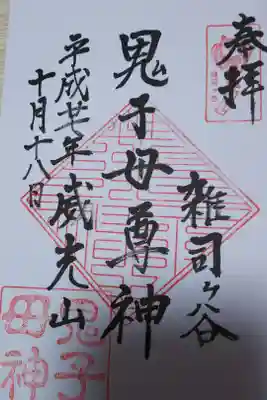 奉拝
雑司ヶ谷
鬼子母尊神
威光山
平成廿年
十月十八日
鬼子
母神